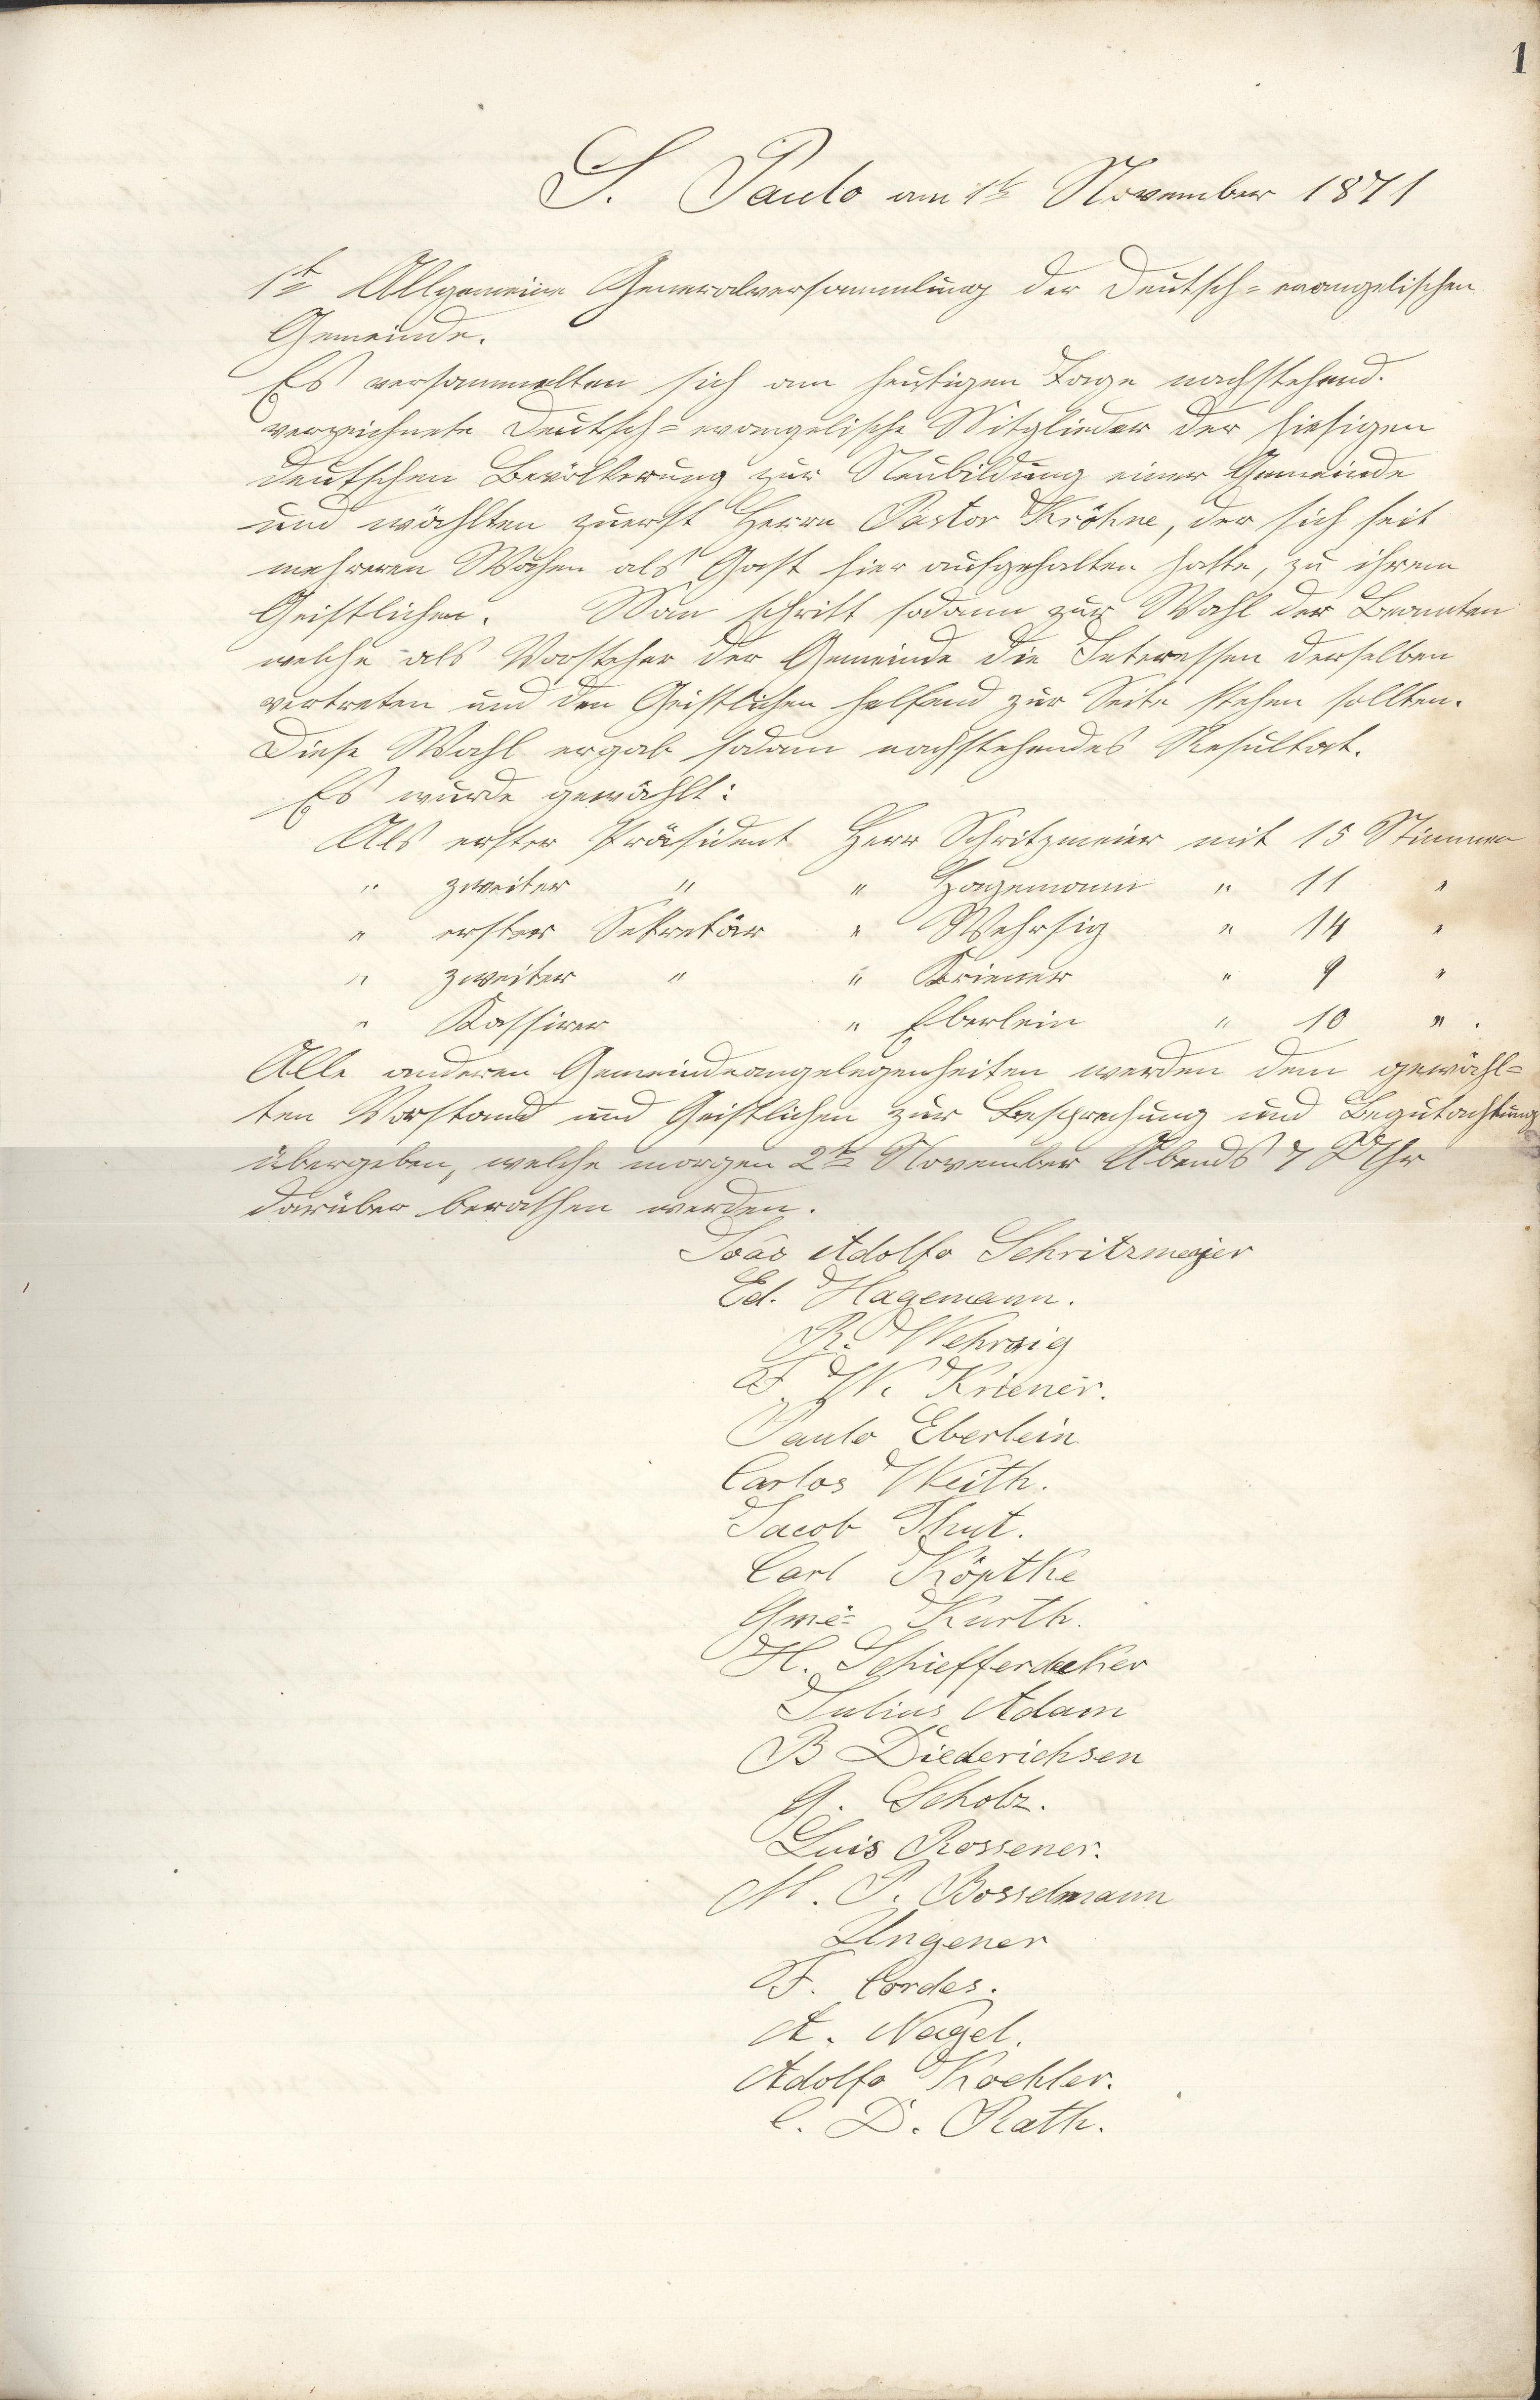 1
S. Paulo am 1te November 1871
1te Allgemeine Generalversammlung der Deutsch=evangelischen
Gemeinde.
Es versammelten sich am heutigen Tage nachstehend.
verzeichnete Deutsch=evangelische Mitglieder der hiesigen
deutschen Bevölkerung zur Neubildung einer Gemeinde
und wählten zuerst Herrn Pastor Kröhne, der sich seit
mehreren Wochen als Gast hier aufgehalten hatte, zu ihrem
Geistlichen. Man schritt sodann zur Wahl der Beamten
welche als Vorsteher der Gemeinde die Interessen derselben
vertreten und den Geistlichen helfend zur Seite stehen sollten.
Diese Wahl ergab sodann nachstehendes Resultat.
Es wurde gewählt:
Als erster Präsident Herr Schritzmeier mit 15 Stimmen
" zweiter " " Hagemann " 11 "
" erster Sekretär " Wehrsig " 14 "
" zweiter " " Kriener " 9 "
" Kassirer " Eberlein " 10 " .
Alle anderen Gemeindeangelegenheiten werden dem gewähl=
ten Vorstand und Geistlichen zur Besprechung und Begutachtung
übergeben, welche morgen 2te November Abends 7 Uhr
darüber berathen werden.
João Adolfo Schritzmejer
Ed. Hagemann.
R. Wehrsig
F. W. Kriener.
Paulo Eberlein
Carlos Weith.
Jacob Thut.
Carl Köptke
Gme= Kurth.
H. Schiefferdecker
Julius Adam
B Diederichsen
G. Scholz.
Luis Rossener.
M. P. Bosselmann
Ungener
F. Cordes.
A. Nagel.
Adolfo Koehler.
C. D. Rath.